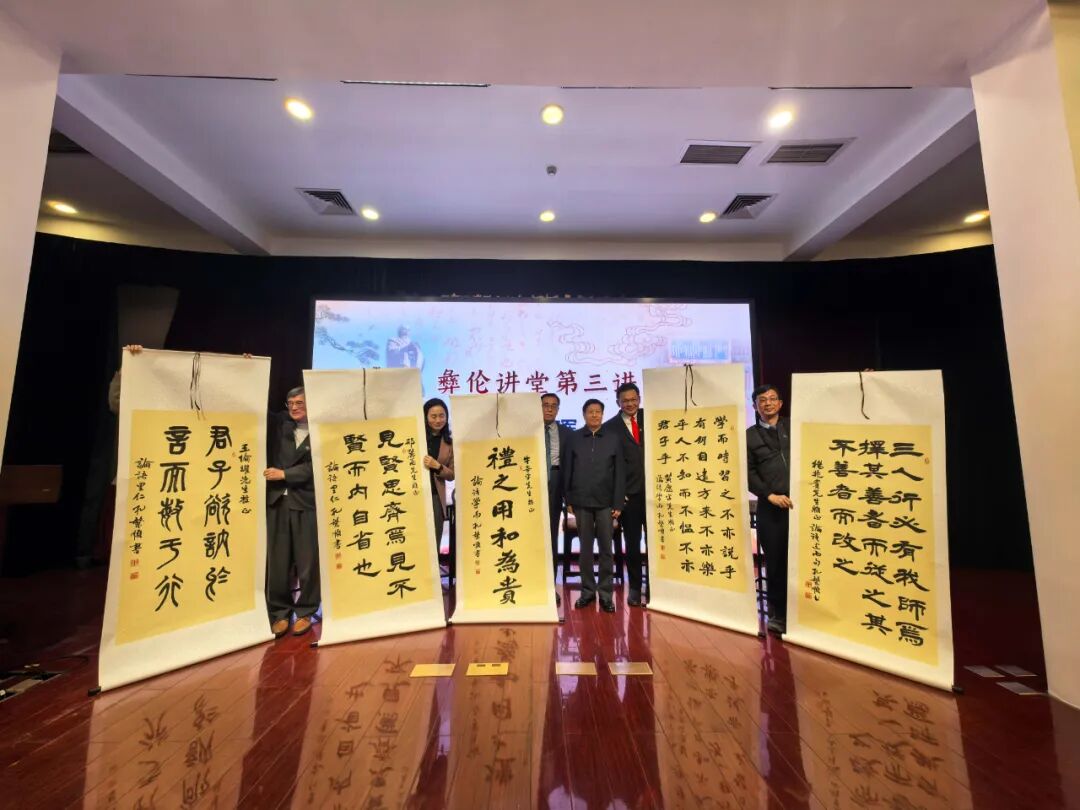 彝伦讲堂第三讲
君子欲訥於
言而敏于行
論語里仁
見賢思齊焉見不
賢而内自省也
論語里仁
禮之用和為貴
論語學而
學而時習之不亦説乎
有朋自遠方來不亦樂
乎人不知而不愠不亦
君子乎
三人行必有我師焉
擇其善者而從之其
不善者而改之